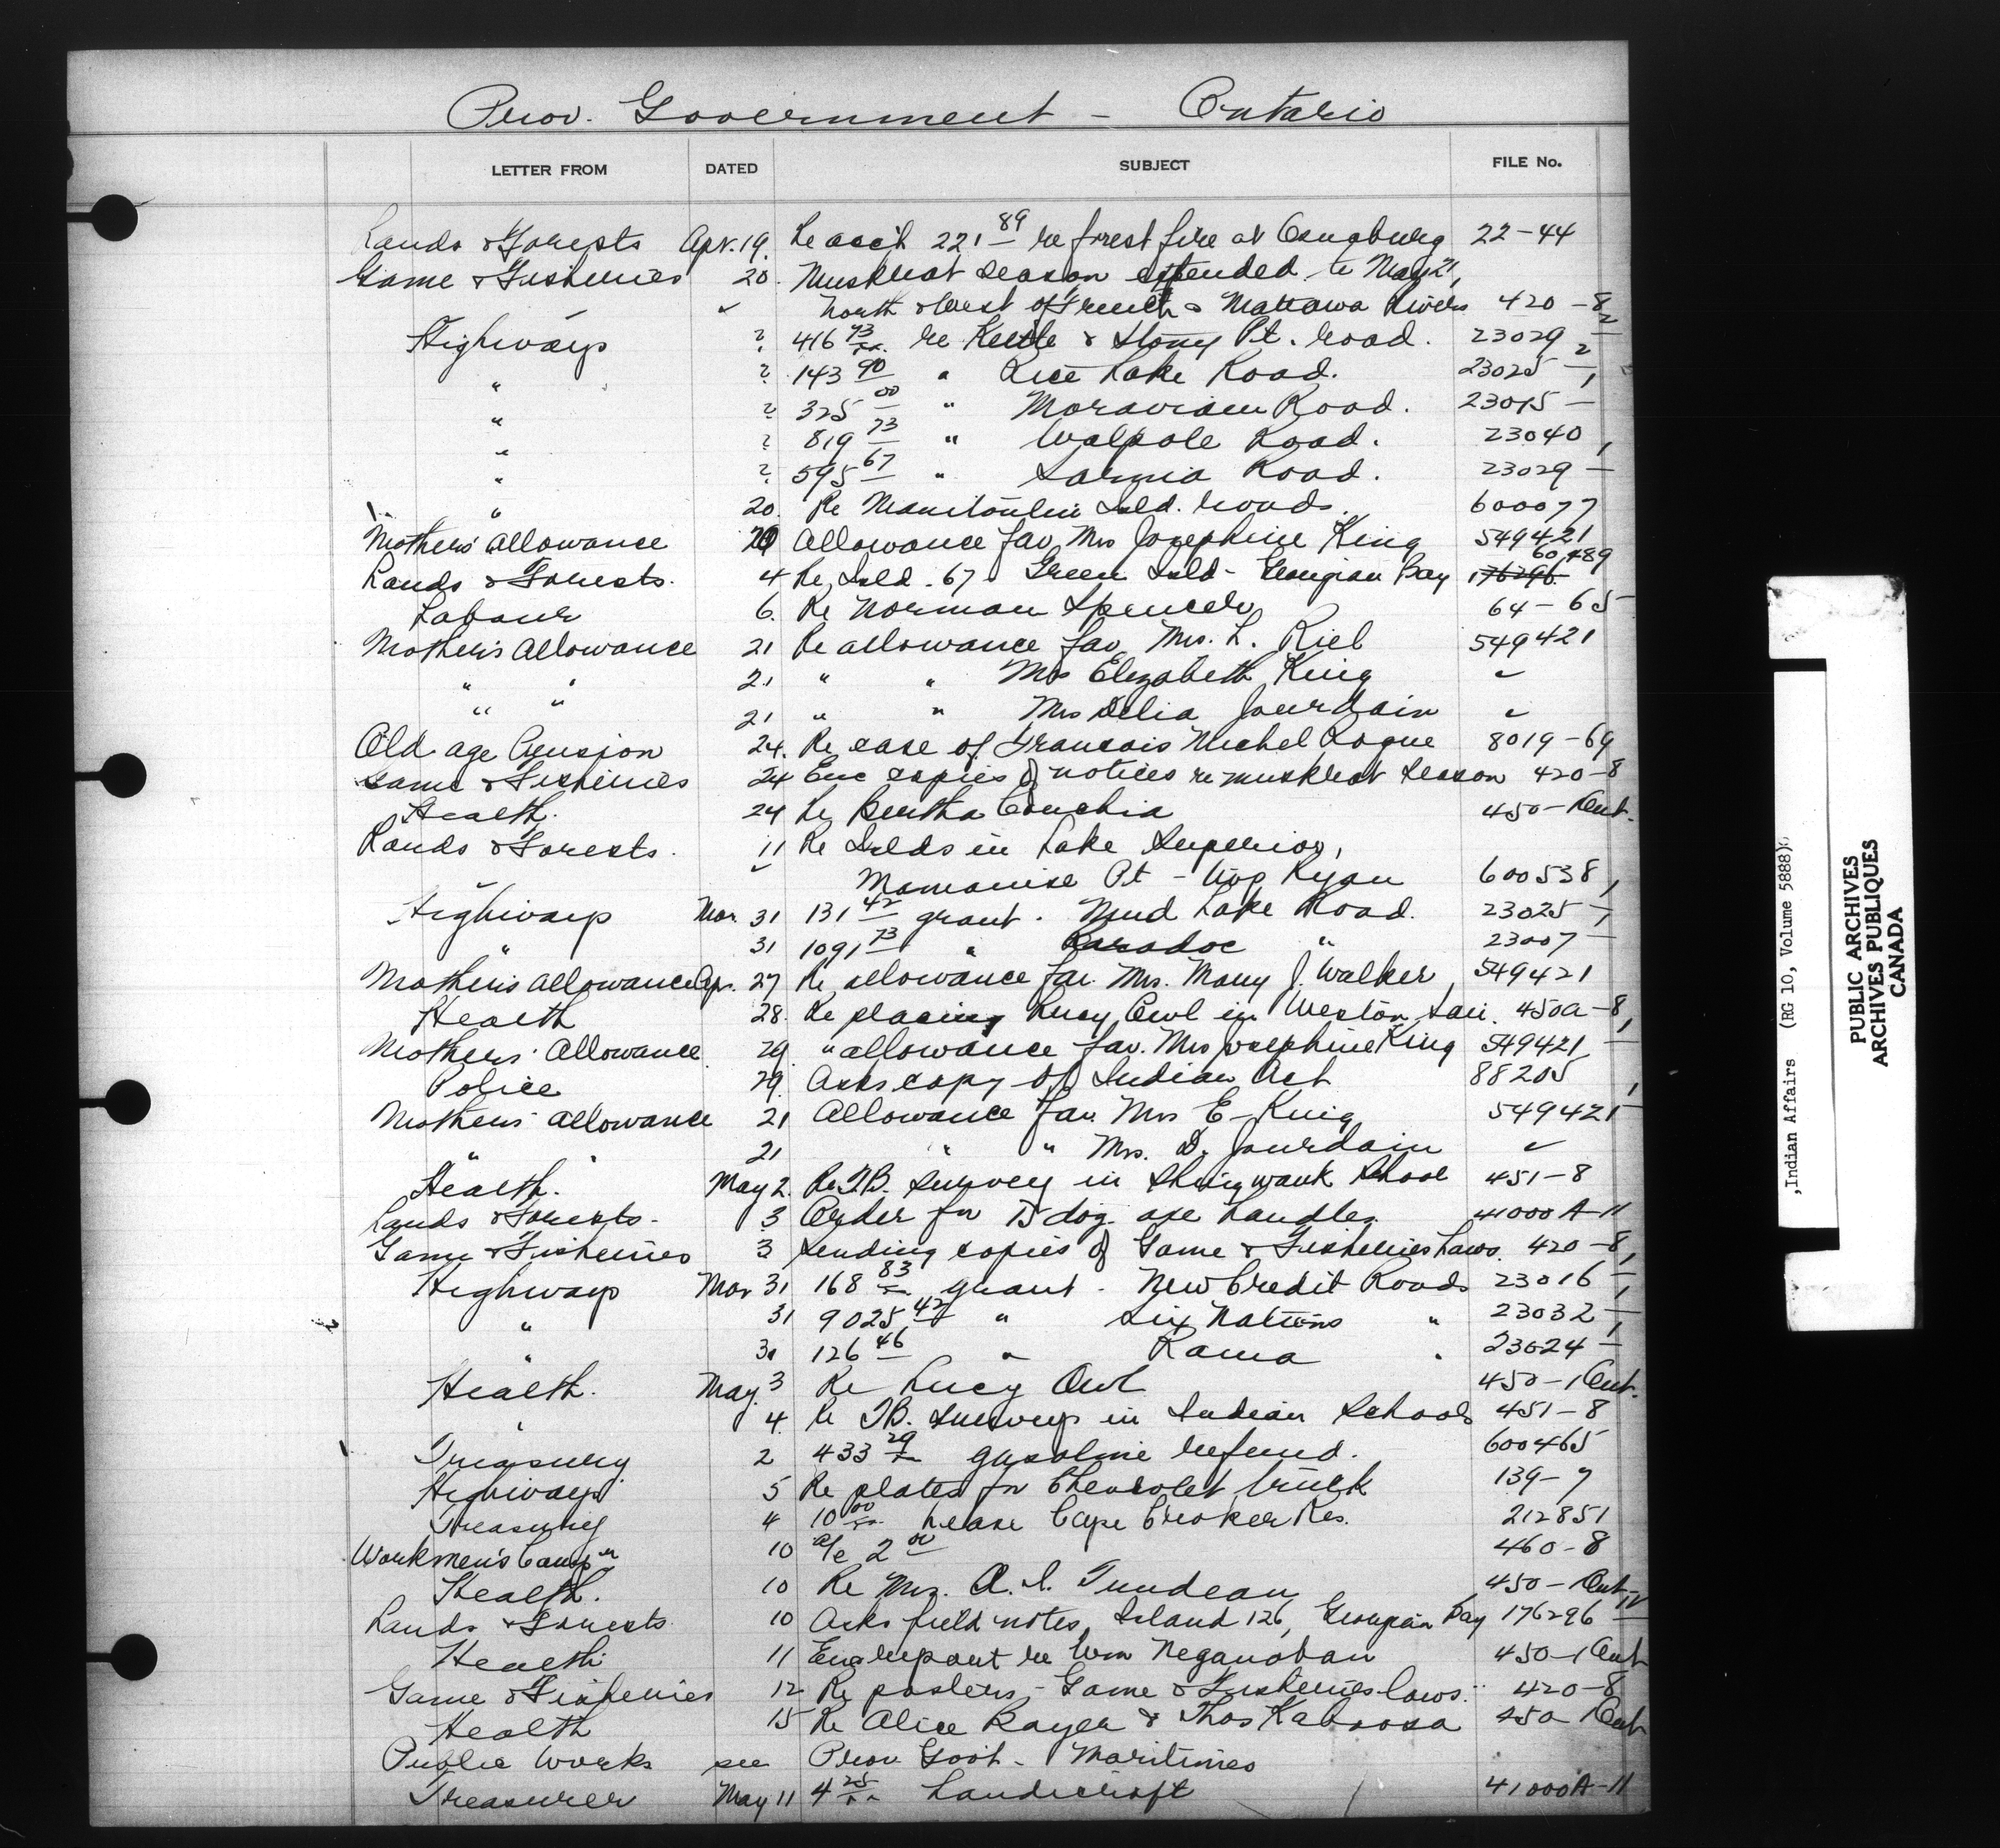 Prov. Government - Ontario
LETTER FROM DATED SUBJECT FILE No.
Lands & Forests Apr. 19. Re acc't 221 89 re forest fire at Osnaburg 22-44
Game & Fisheries 20. Muskrat season extended to May 21,
✓ North & West of French & Mattawa Rivers 420-8
Highways ? 416 93 re Kettle & Stony Pt. road. 23029 - 2
" ? 143 90 " Rice Lake Road. 23025 - 2
" ? 325 00 " Moravian Road. 23015 - 1
" ? 819 73 " Walpole Road. 23040
" ? 595 67 " Sarnia Road. 23029 - 1
" 20. Re Manitoulin Isld. roads. 600077
Mothers' Allowance 20 Allowance fav. Mrs Josephine King 549421
Lands & Forests. 4 Re Isld. 67. Green Isld - Georgian Bay 176296 60,489
Labour 6. Re Norman Spencer 64-65
Mother's Allowance 21 Re allowance fav. Mrs. L. Riel 549421
" " 21 " " Mrs Elizabeth King ✓
" " 21 " " Mrs Delia Jourdain ✓
Old age Pension 24. Re case of Francois Michel Logue 8019-69
Game & Fisheries 24 Enc copies of notices re muskrat season 420-8
Health. 24 Re Bertha Couchia 450-1 Ont.
Lands & Forests. 11 Re Islds in Lake Superior,
✓ Mamainse Pt - Twp Ryan 600538
Highways Mar. 31 131 42 grant. Mud Lake Road. 23025 - 1
" 31 1091 73 " Caradoc " 23007 - 1
Mother's Allowance Apr. 27 Re allowance fav. Mrs. Mary J. Walker 549421
Health 28. Re placing Lucy Owl in Weston San. 450A-8
Mothers' Allowance 29 " allowance fav. Mrs Josephine King 549421 - 1
Police 29. Asks copy of Indian Act 88205
Mothers' Allowance 21 Allowance fav. Mrs E- King 549421 - 1
" " 21 " " Mrs. D. Jourdain ✓
Health. May 2. Re T.B. survey in Shingwauk School 451-8
Lands & Forests. 3 Order for 15 doz. axe handles 41000A-11
Game & Fisheries 3 Sending copies of Game & Fisheries Laws. 420-8
Highways Mar 31 168 83 grant. New Credit Roads 23016 - 1
" 31 9025 42 " Six Nations " 23032 - 1
" 31 126 46 " Rama " 23024 - 1
Health. May 3 Re Lucy Owl 450-1 Ont.
" 4. Re T.B. surveys in Indian Schools 451-8
Treasury 2 433 29 gasoline refund. 600465
Highways 5 Re plates for Chevrolet truck 139-7
Treasury 4 10 00 Lease Cape Croker Res. 212851
Workmen's Comp'n 10 a/c 2 00 460-8
Health. 10 Re Mrs. A. I. 450-1 Ont.
Lands & Forests. 10 Asks field notes, Island 126, Georgian Bay 176296 IV
Health 11 Enc report re Wm Neganoban 450-1 Ont
Game & Fisheries 12 Re posters - Game & Fisheries laws. 420-8
Health 15 Re Alice & Thos Kaboosa 450-1 Ont
Public Works see Prov Govt - Maritimes
Treasurer May 11 4 25 handicraft 41000A-11
,Indian Affairs (RG 10, Volume 5888)
PUBLIC ARCHIVES
ARCHIVES PUBLIQUES
CANADA